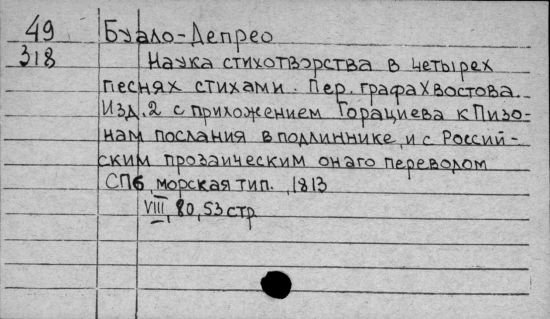 49 Буало-Депрео
318 Наука стихотворства в четырех
песнях стихами. Пер. графа Хвостова.
Изд. 2 с приложением Горациева к Пизо-
нам послания в подлиннике, и с Россий-
ским прозаическим онаго переводом
СПб, морская тип., 1813
VIII, 80, 53 стр